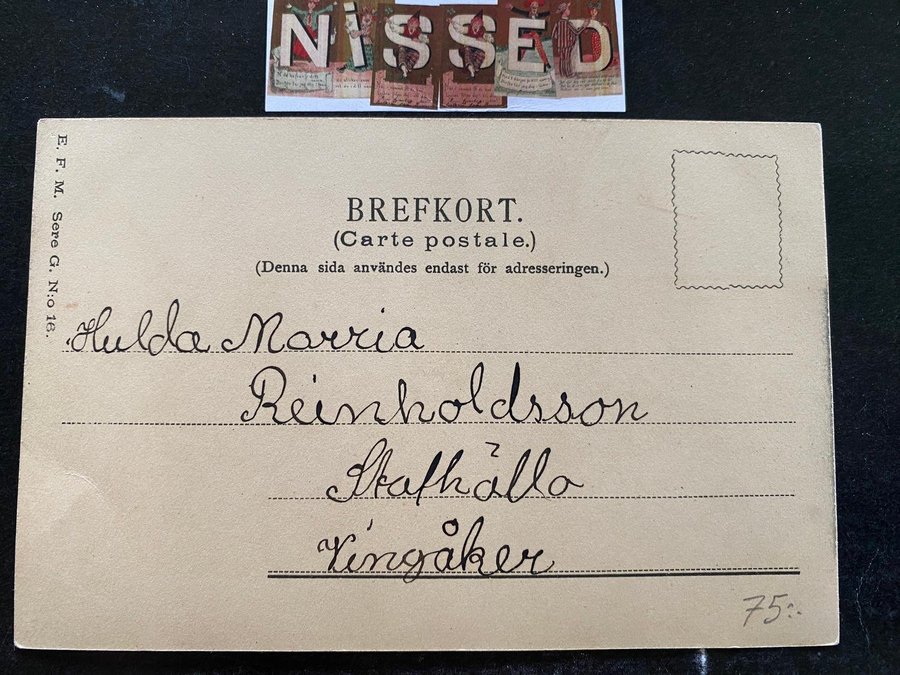 NiSSED
E. F. M. Sere G. N:o 16.
BREFKORT.
(Carte postale.)
(Denna sida användes endast för adresseringen.)
Hulda Marria
Reinholdsson
Stafhälla
Vingåker
75:-